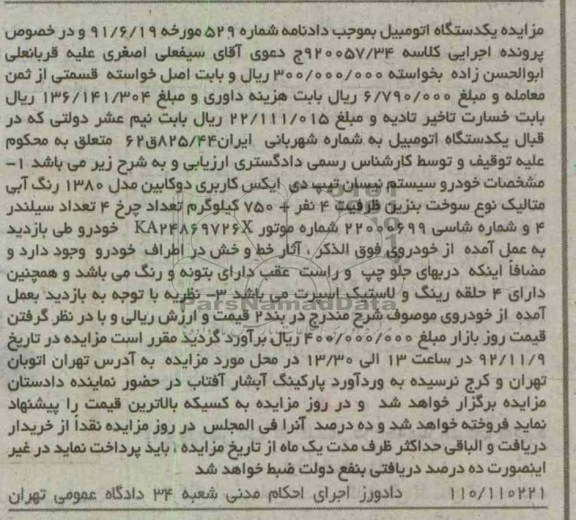 مزایده یکدستگاه اتومبیل بموجب دادنامه شماره ۵۲۹ مورخه ۹۱/۶/۱۹ و در خصوص
پرونده اجرایی کلاسه ۹۲۰۰۵۷/۳۴ج دعوی آقای سیفعلی اصغری علیه قربانعلی
ابوالحسن زاده بخواسته ۳۰۰/۰۰۰/۰۰۰ ریال و بابت اصل خواسته قسمتی از ثمن
معامله و مبلغ ۶/۷۹۰/۰۰۰ ریال بابت هزینه داوری و مبلغ ۱۳۶/۱۴۱/۳۰۴ ریال
بابت خسارت تاخیر تادیه و مبلغ ۲۲/۱۱۱/۰۱۵ ریال بابت نیم عشر دولتی که در
قبال یکدستگاه اتومبیل به شماره شهربانی ایران۸۲۵/۴۴ق۶۲ متعلق به محکوم
علیه توقیف و توسط کارشناس رسمی دادگستری ارزیابی و به شرح زیر می باشد ۱-
مشخصات خودرو سیستم نیسان تیپ دی ایکس کاربری دوکابین مدل ۱۳۸۰ رنگ آبی
متالیک نوع سوخت بنزین ظرفیت ۴ نفر + ۷۵۰ کیلوگرم تعداد چرخ ۴ تعداد سیلندر
۴ و شماره شاسی ۲۲۰۰۰۶۹۹ شماره موتور KA۲۴۸۶۹۷۲۶X خودرو طی بازدید
به عمل آمده از خودروی فوق الذکر، آثار خط و خش در اطراف خودرو وجود دارد و
مضافا اینکه دربهای جلو چپ و راست عقب دارای بتونه و رنگ می باشد و همچنین
دارای ۴ حلقه رینگ و لاستیک اسپرت می باشد ۳- نظریه با توجه به بازدید بعمل
آمده از خودروی موصوف شرح مندرج در بند۲ قیمت و ارزش ریالی و با در نظر گرفتن
قیمت روز بازار مبلغ ۴۰۰/۰۰۰/۰۰۰ ریال برآورد گردید مقرر است مزایده در تاریخ
۹۲/۱۱/۹ در ساعت ۱۳ الی ۱۳/۳۰ در محل مورد مزایده به آدرس تهران اتوبان
تهران و کرج نرسیده به وردآورد پارکینگ آبشار آفتاب در حضور نماینده دادستان
مزایده برگزار خواهد شد و در روز مزایده به کسیکه بالاترین قیمت را پیشنهاد
نماید فروخته خواهد شد و ده درصد آنرا فی المجلس در روز مزایده نقداً از خریدار
دریافت و الباقی حداکثر ظرف مدت یک ماه از تاریخ مزایده، باید پرداخت نماید در غیر
اینصورت ده درصد دریافتی بنفع دولت ضبط خواهد شد
۱۱۰/۱۱۰۲۲۱ دادورز اجرای احکام مدنی شعبه ۳۴ دادگاه عمومی تهران
ParsNamadData